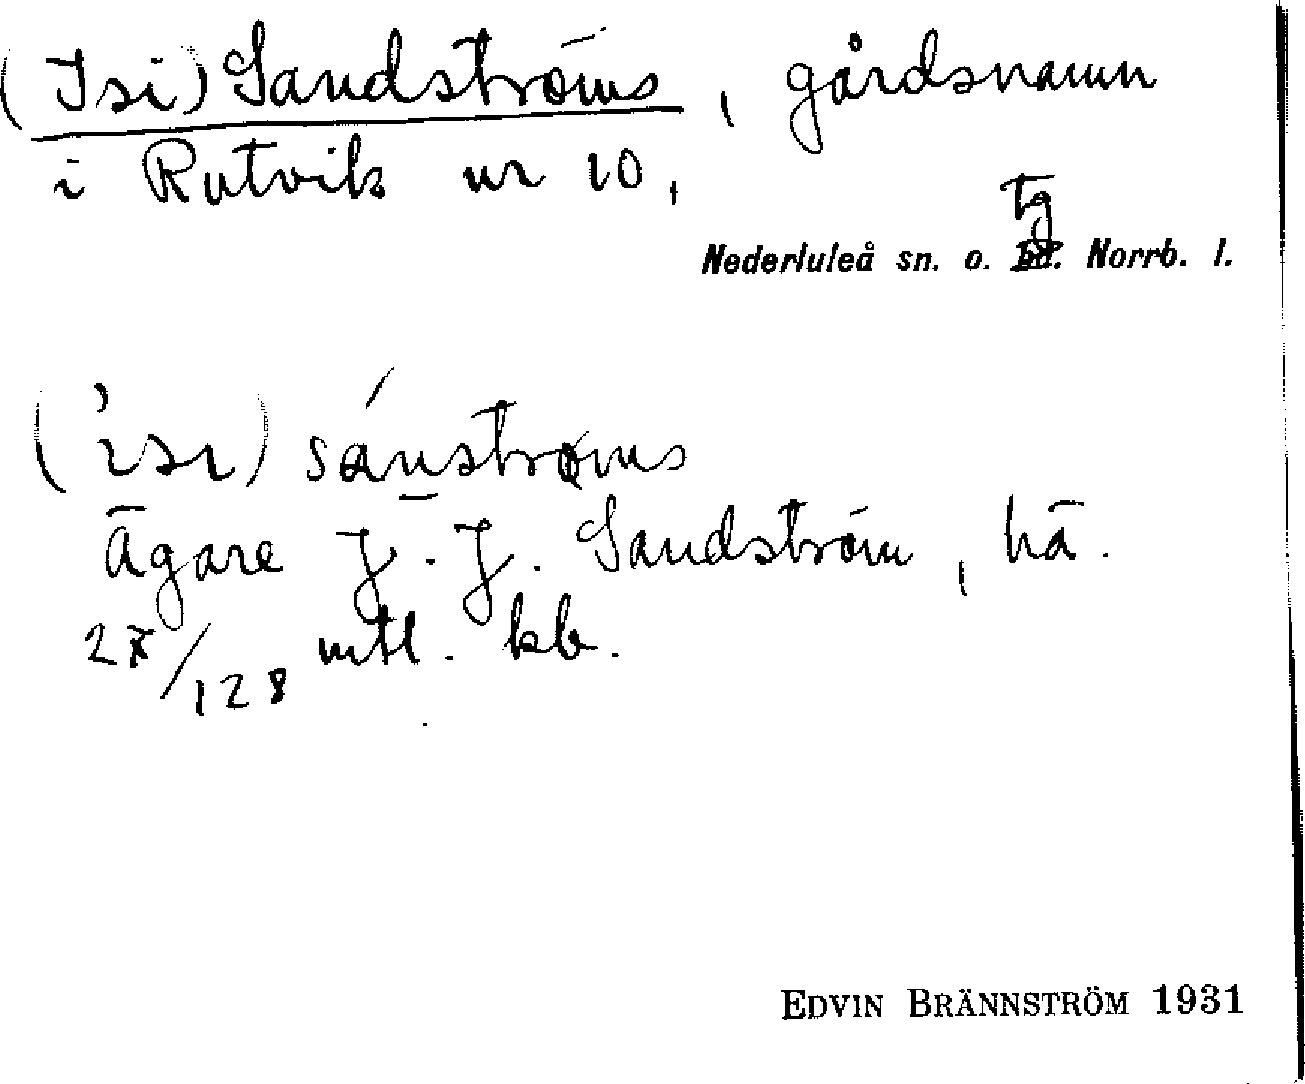 (Isi) Sandströms, gårdsnamn
i Rutvik nr 10,
tg
Nederluleå sn. o. hd. Norrb. l.
(ɩsɩ) sánstrøms
Ägare J. J. Sandström, hä.
/128 mtl. kb.
EDVIN BRÄNNSTRÖM 1931